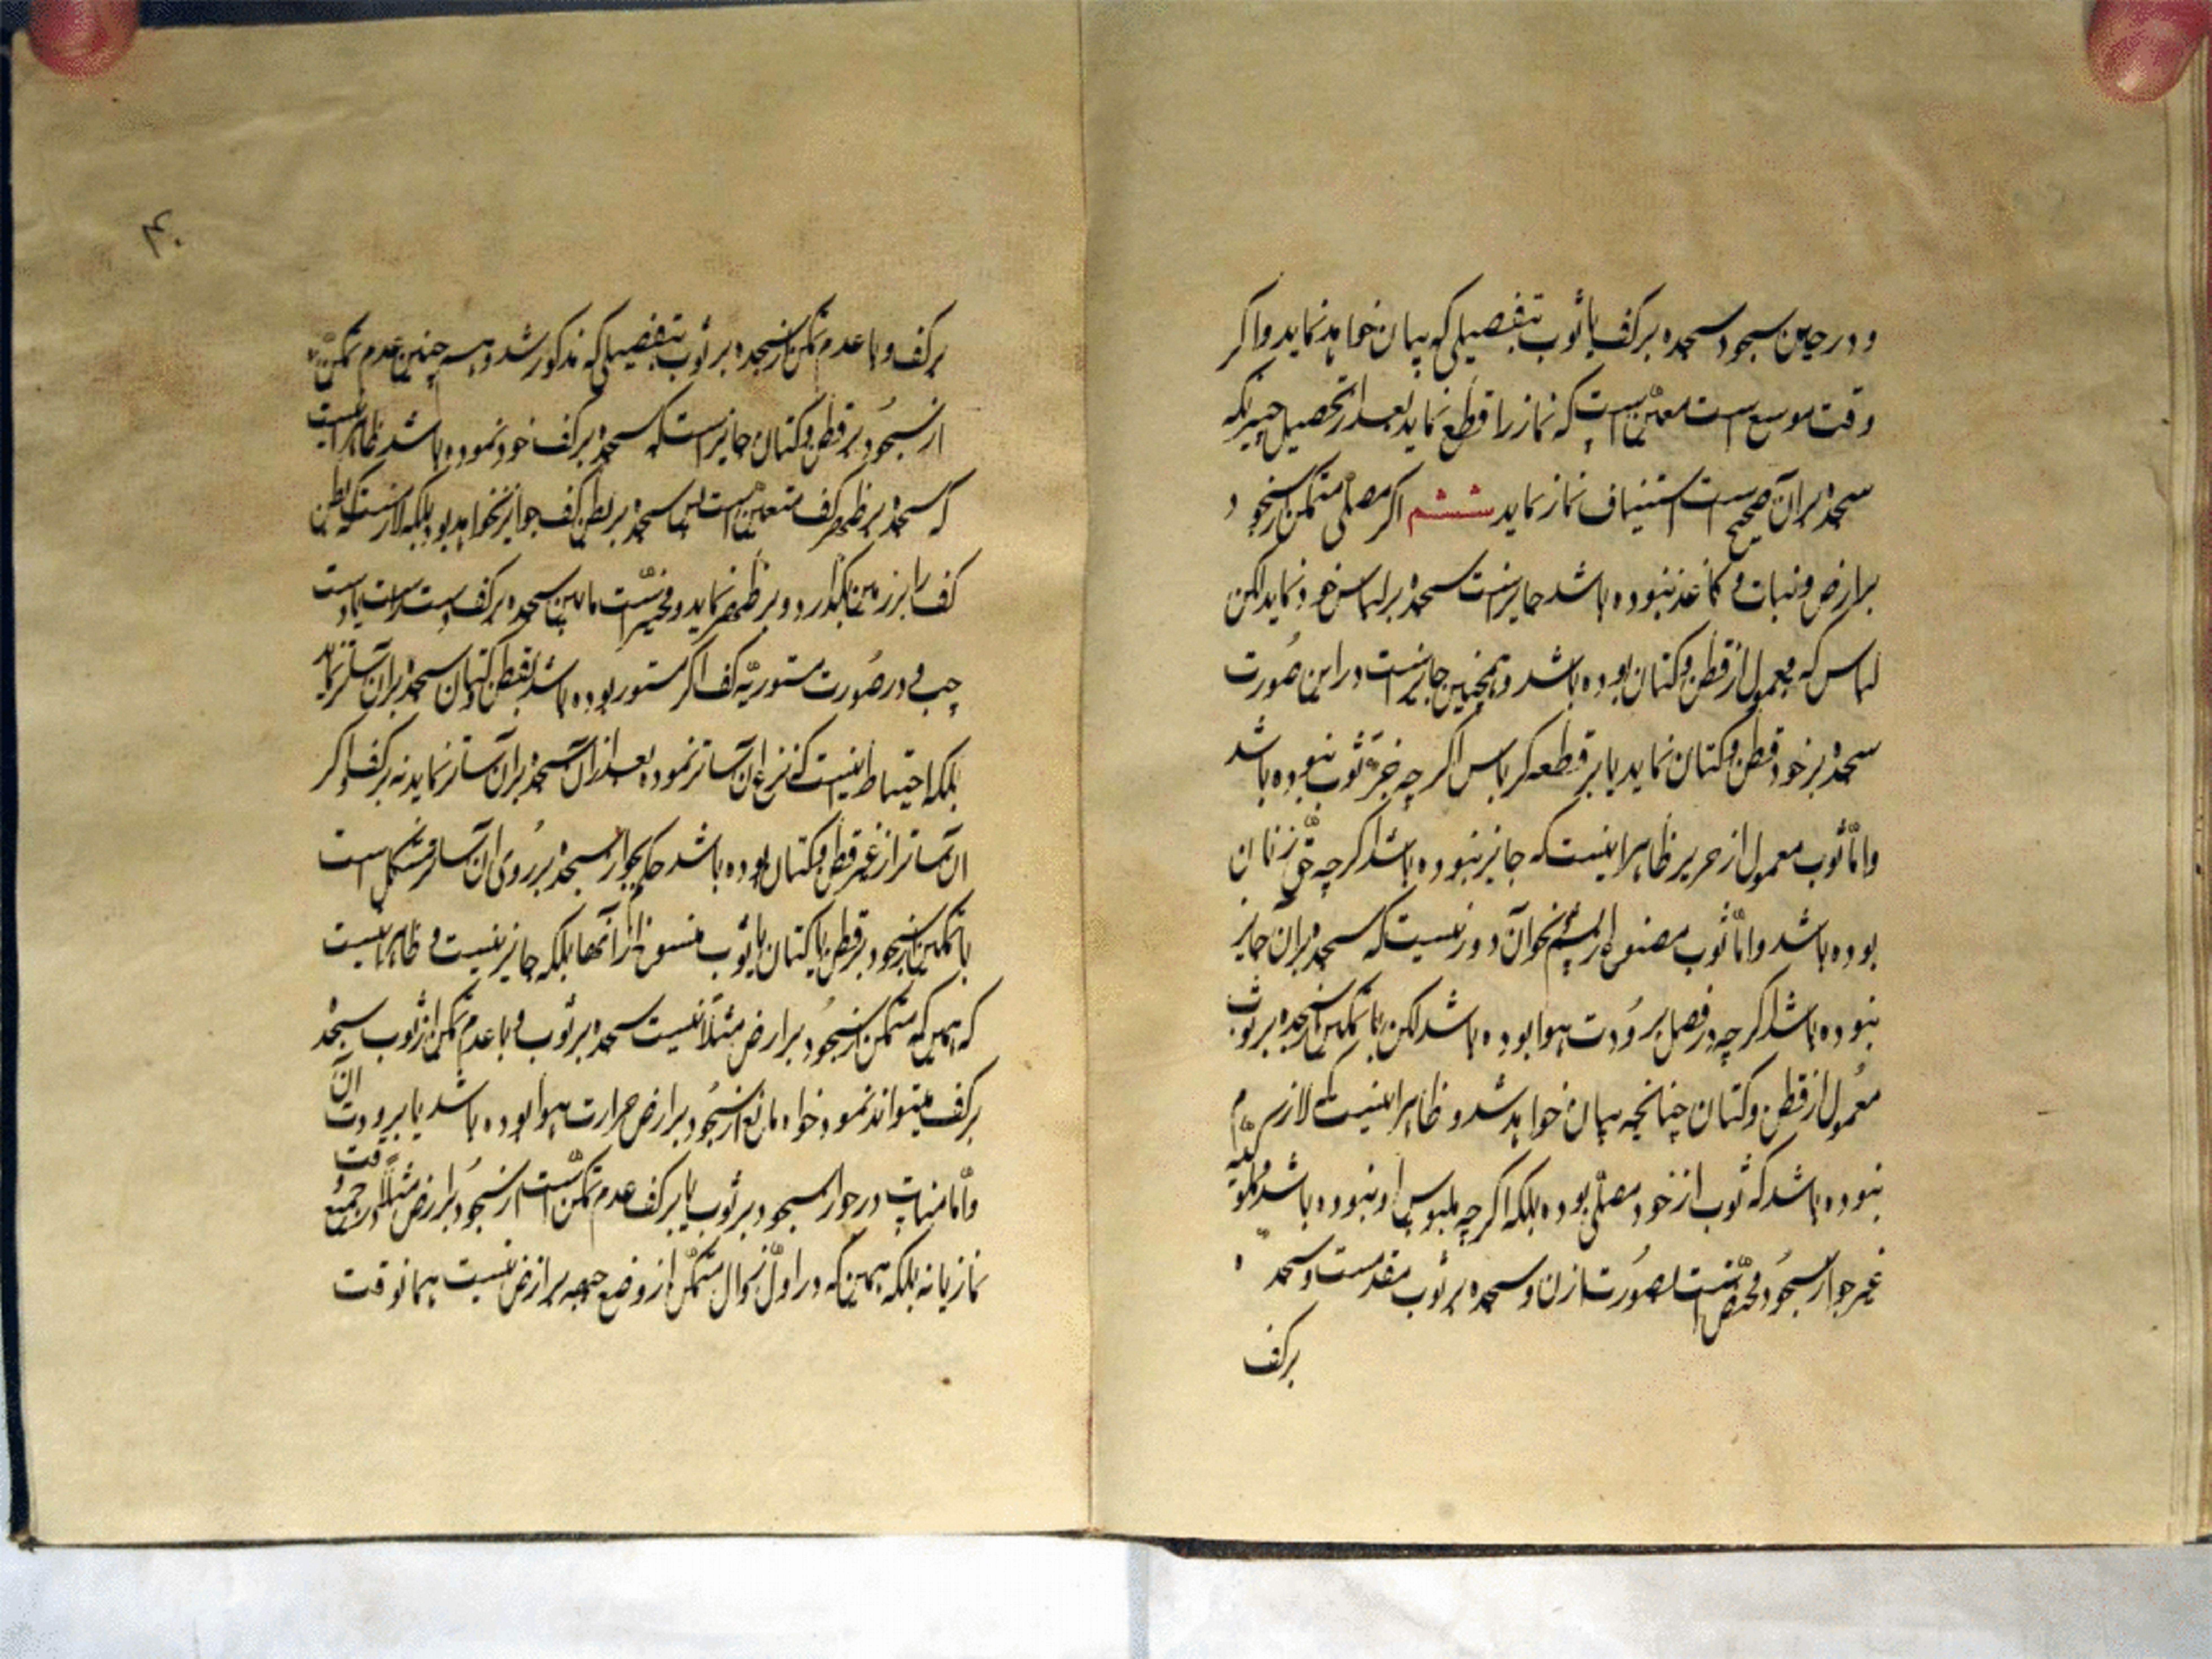 و در حین سجود سجده بر کف یا ثوب بتفصیلی که بیان خواهد نماید و اگر
وقت موسع است معین است که نماز را قطع نماید بعد از تحصیل چیزیکه
سجده بر آن صحیح است استیناف نماز نماید ششم اگر مصلی متمکن از سجود
بر ارض و نبات و کاغذ نبوده باشد جایز است سجده بر لباس خود نماید لکن
لباس که معمول از قطن و کتان بوده باشد و همچنین جایز است در این صورت
سجده بر خود قطن و کتان نماید یا بر قطعه کرباس اگر چه جزء ثوب نبوده باشد
و امّا ثوب معمول از حریر ظاهرا اینست که جایز نبوده باشد اگر چه حقّ زنان
بوده باشد و امّا ثوب مصنوع از پشم نحو آن دور نیست که سجده بر آن جایز
نبوده باشد اگر چه در فصل برودت هوا بوده باشد لکن با تمکن از سجده بر ثوب
معمول از قطن و کتان چنانچه بیان خواهد شد و ظاهرا اینست که لازم
نبوده باشد که ثوب از خود مصلّی بوده بلکه اگر چه ملبوس او نبوده باشد
غیر جواز سجود مختصّ است بصورت اذن و سجده بر ثوب مقدمست و سجده
بر کف
۴۰
بر کف و با عدم تمکن از سجده بر ثوب بتفصیلی که مذکور شد و همچنین عدم تمکن
از سجود بر قطن و کتان جایز است که سجده بر کف خود نموده باشد ظاهرا اینست
که سجده بر ظهر کف متعین است پس سجده بر بطن کف جوایز نخواهد بود بلکه لازمست که بطن
کف را بر زمین بگذارد و بر ظهر نماید و مخیّر است ما بین سجده بر کف دست راست یا دست
چپ و در صورت مستوریّه کف اگر مستور بوده باشد بقطن و کتان سجده بر آن ساتر نماید
بلکه احتیاط اینست که نزع آن ساتر نموده بعد از آن سجده بر آن ساتر نماید نه بر کف و اگر
آن ساتر از غیر قطن و کتان بوده باشد حکم بجواز سجده بر روی آن ساتر مشکل است
با تمکن از سجود بر قطن یا کتان یا ثوب منسوج از آنها بلکه جایز نیست و ظاهرا اینست
که همین که متمکن از سجود بر ارض مثلا نیست سجده بر ثوب و با عدم تمکن از ثوب سجده
بر کف میتواند نمود خواه مانع از سجود بر ارض حرارت هوا بوده باشد یا برودت آن
و امّا مناط در جواز سجود بر ثوب یا بر کف عدم تمکّن است از سجود بر ارض مثلا در جمیع وقت
نماز یا نه بلکه همین که در اوّل زوال متمکّن از وضع جبهه بر ارض نیست همانوقت